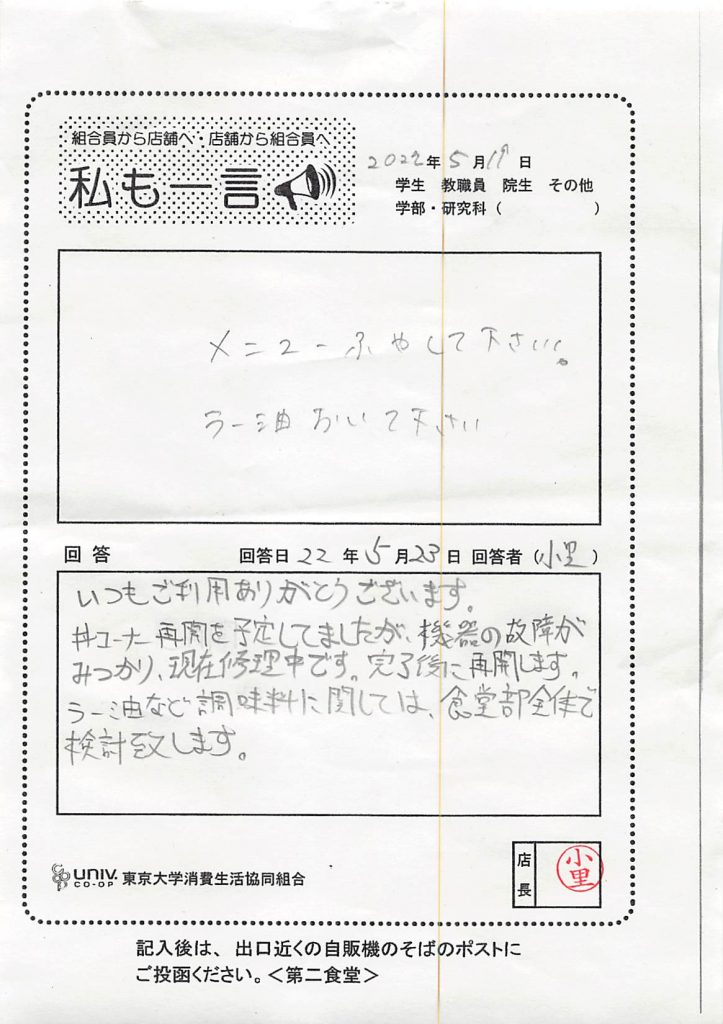 組合員から店舗へ・店舗から組合員へ
私も一言
2022年5月19日
学生 教職員 院生 その他
学部・研究科( )
メニューふやして下さい。
ラー油おいて下さい
回答 回答日22年5月23日 回答者(小里)
いつもご利用ありがとうございます。
丼コーナー再開を予定してましたが、機器の故障が
みつかり、現在修理中です。完了後に再開します。
ラー油など調味料に関しては、食堂部全体で
検討致します。
UNIV. CO-OP 東京大学消費生活協同組合
店長 小里
記入後は、出口近くの自販機のそばのポストに
ご投函ください。<第二食堂>